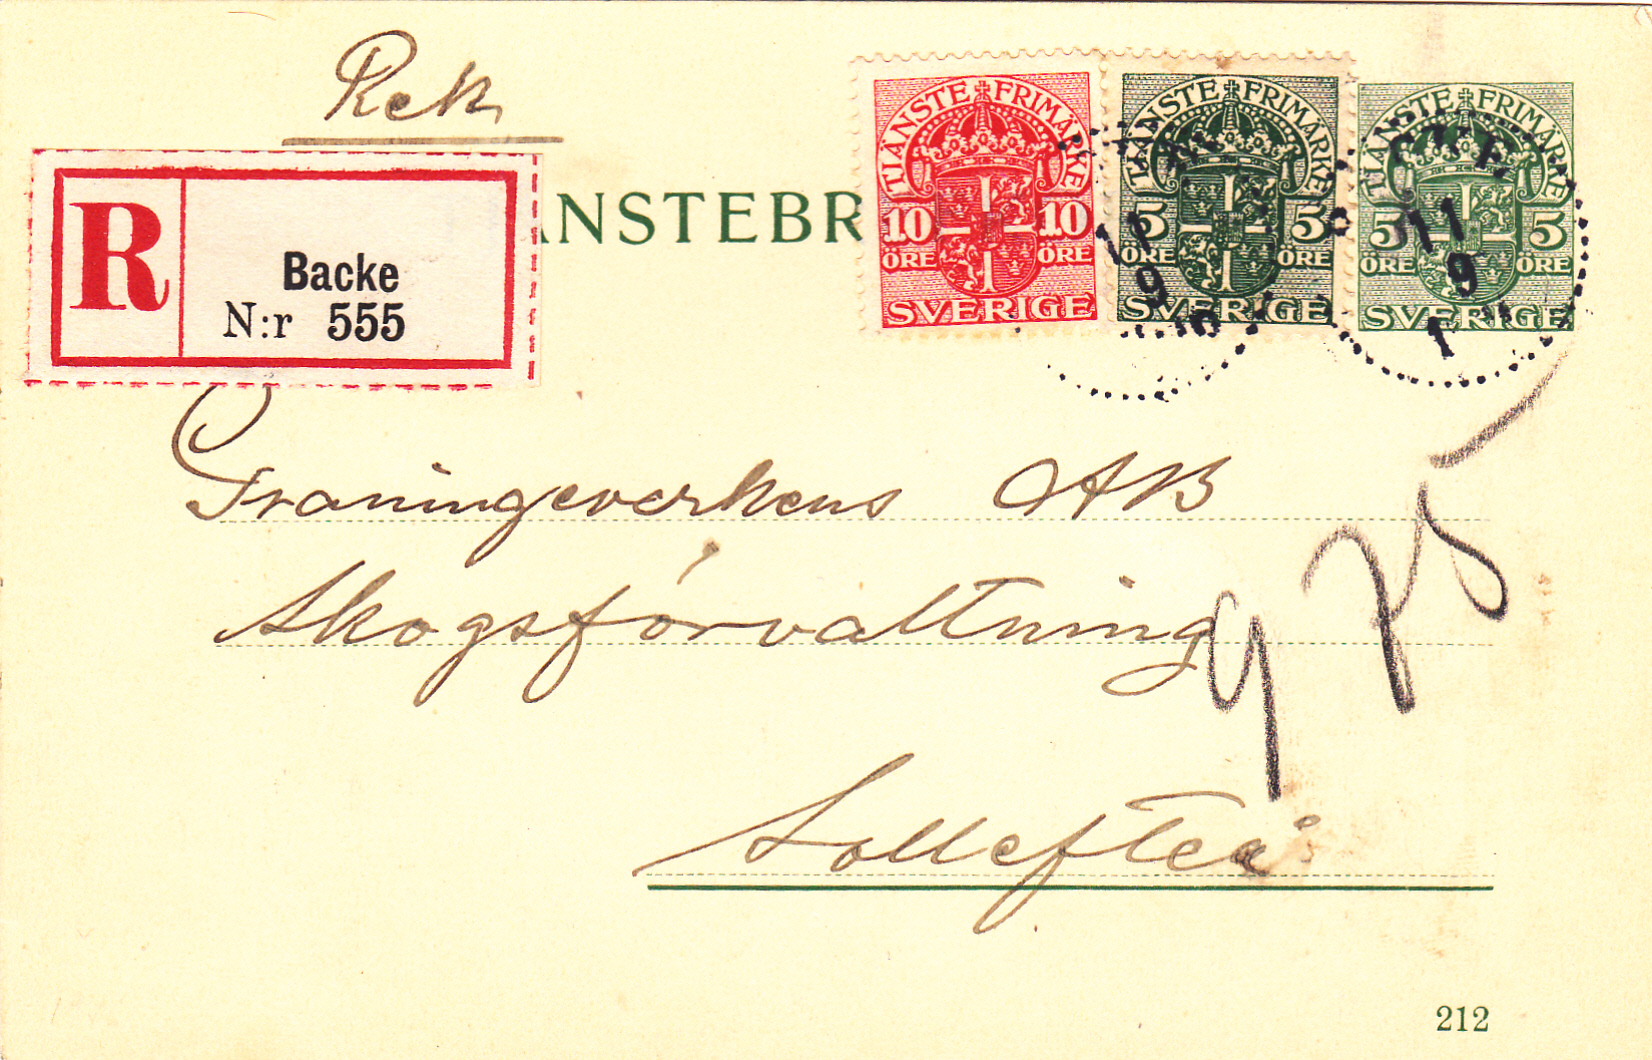 Rek
R
Backe
N:r 555
ÄNSTEBR
TJÄNSTE FRIMÄRKE
10 10
ÖRE ÖRE
SVERIGE
TJÄNSTE FRIMÄRKE
5 5
ÖRE ÖRE
SVERIGE
TJÄNSTE FRIMÄRKE
5 5
ÖRE ÖRE
SVERIGE
11
9
11
9
1
Graningeverkens AB
Skogsförvaltning
925
Sollefteå
212